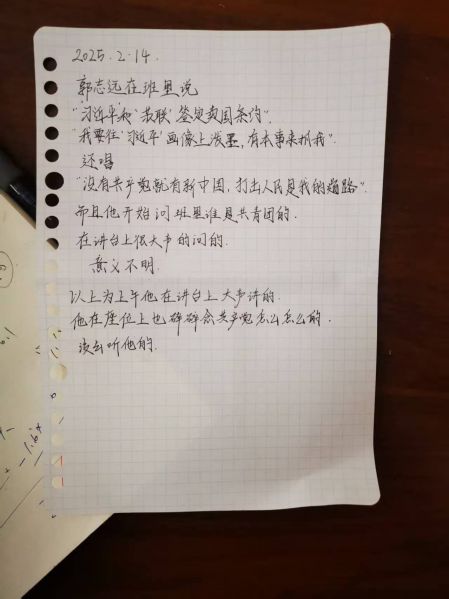 2025.2.14.
郭志远在班里说
"'习近平'和'苏联'签定卖国条约".
"我要往'习近平'画像上泼墨,有本事来抓我".
还唱
"没有共产党就有新中国,打击人民是我的道路".
而且他开始问班里谁是共青团的.
在讲台上很大声的问的.
意义不明.
以上为上午他在讲台上大声讲的.
他在座位上也碎碎念共产党怎么怎么的.
没去听他的.